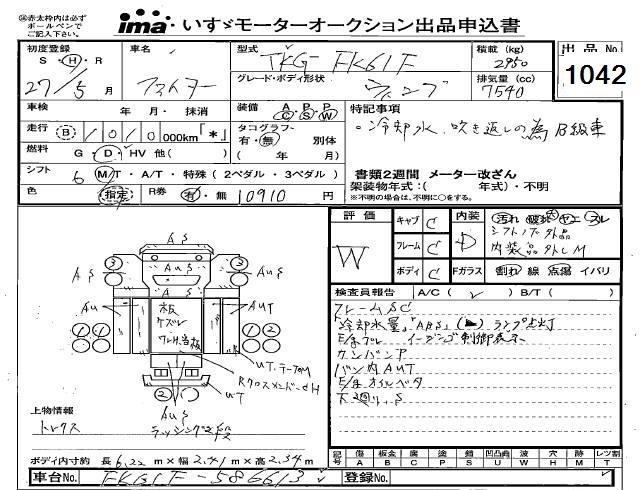 ㊟赤太枠内は必ず
ボールペンで
ご記入下さい。
ima いすゞモーターオークション出品申込書
初度登録 車名 型式 積載 (kg) 出品No
S・H・R TKG FK61F 2950
27/5月 グレード・ボディ形状 排気量 (cc) 1042
ウィング 7540
車検 年・月・抹消 装備 A P P C S W 特記事項
走行 B 1010000km「*」 タコグラフ 有・無 別体 。冷却水、吹き返しの為B級車
燃料 G・D・HV 他( ) ( 年/ 月)
シフト 6 MT・A/T・特殊(2ペダル・3ペダル) 書類2週間 メーター改ざん
架装物年式:( 年式)・不明
色 指定 R券 有・無 10910円 ※不明の場合は、不明に○をする。
評価 キャブ C 内装 D 汚れ
W フレーム C シフトノブ外品
内装品外しM
ボディ C Fガラス 割れ 線 点傷 イバリ
検査員報告 A/C( ) B/T( )
フレームSC
「冷却水量」「ABS」 ランプ点灯
バン内AUT
下廻り.S
AS
AS AuS AuS
3 3
Au 板 AUT
1 1 1 1
uT.テープM
2 uT
AuS
上物情報
トレクス ラッシング2段
記号 傷 凹 板金 腐 塗 錆 凹凸曲 波 穴 跡 レツ割
A B C P S U W H M T
ボディ内寸約 長6.22 m×幅2.41 m×高2.34 m
車台No. FK61F-586613 登録No.